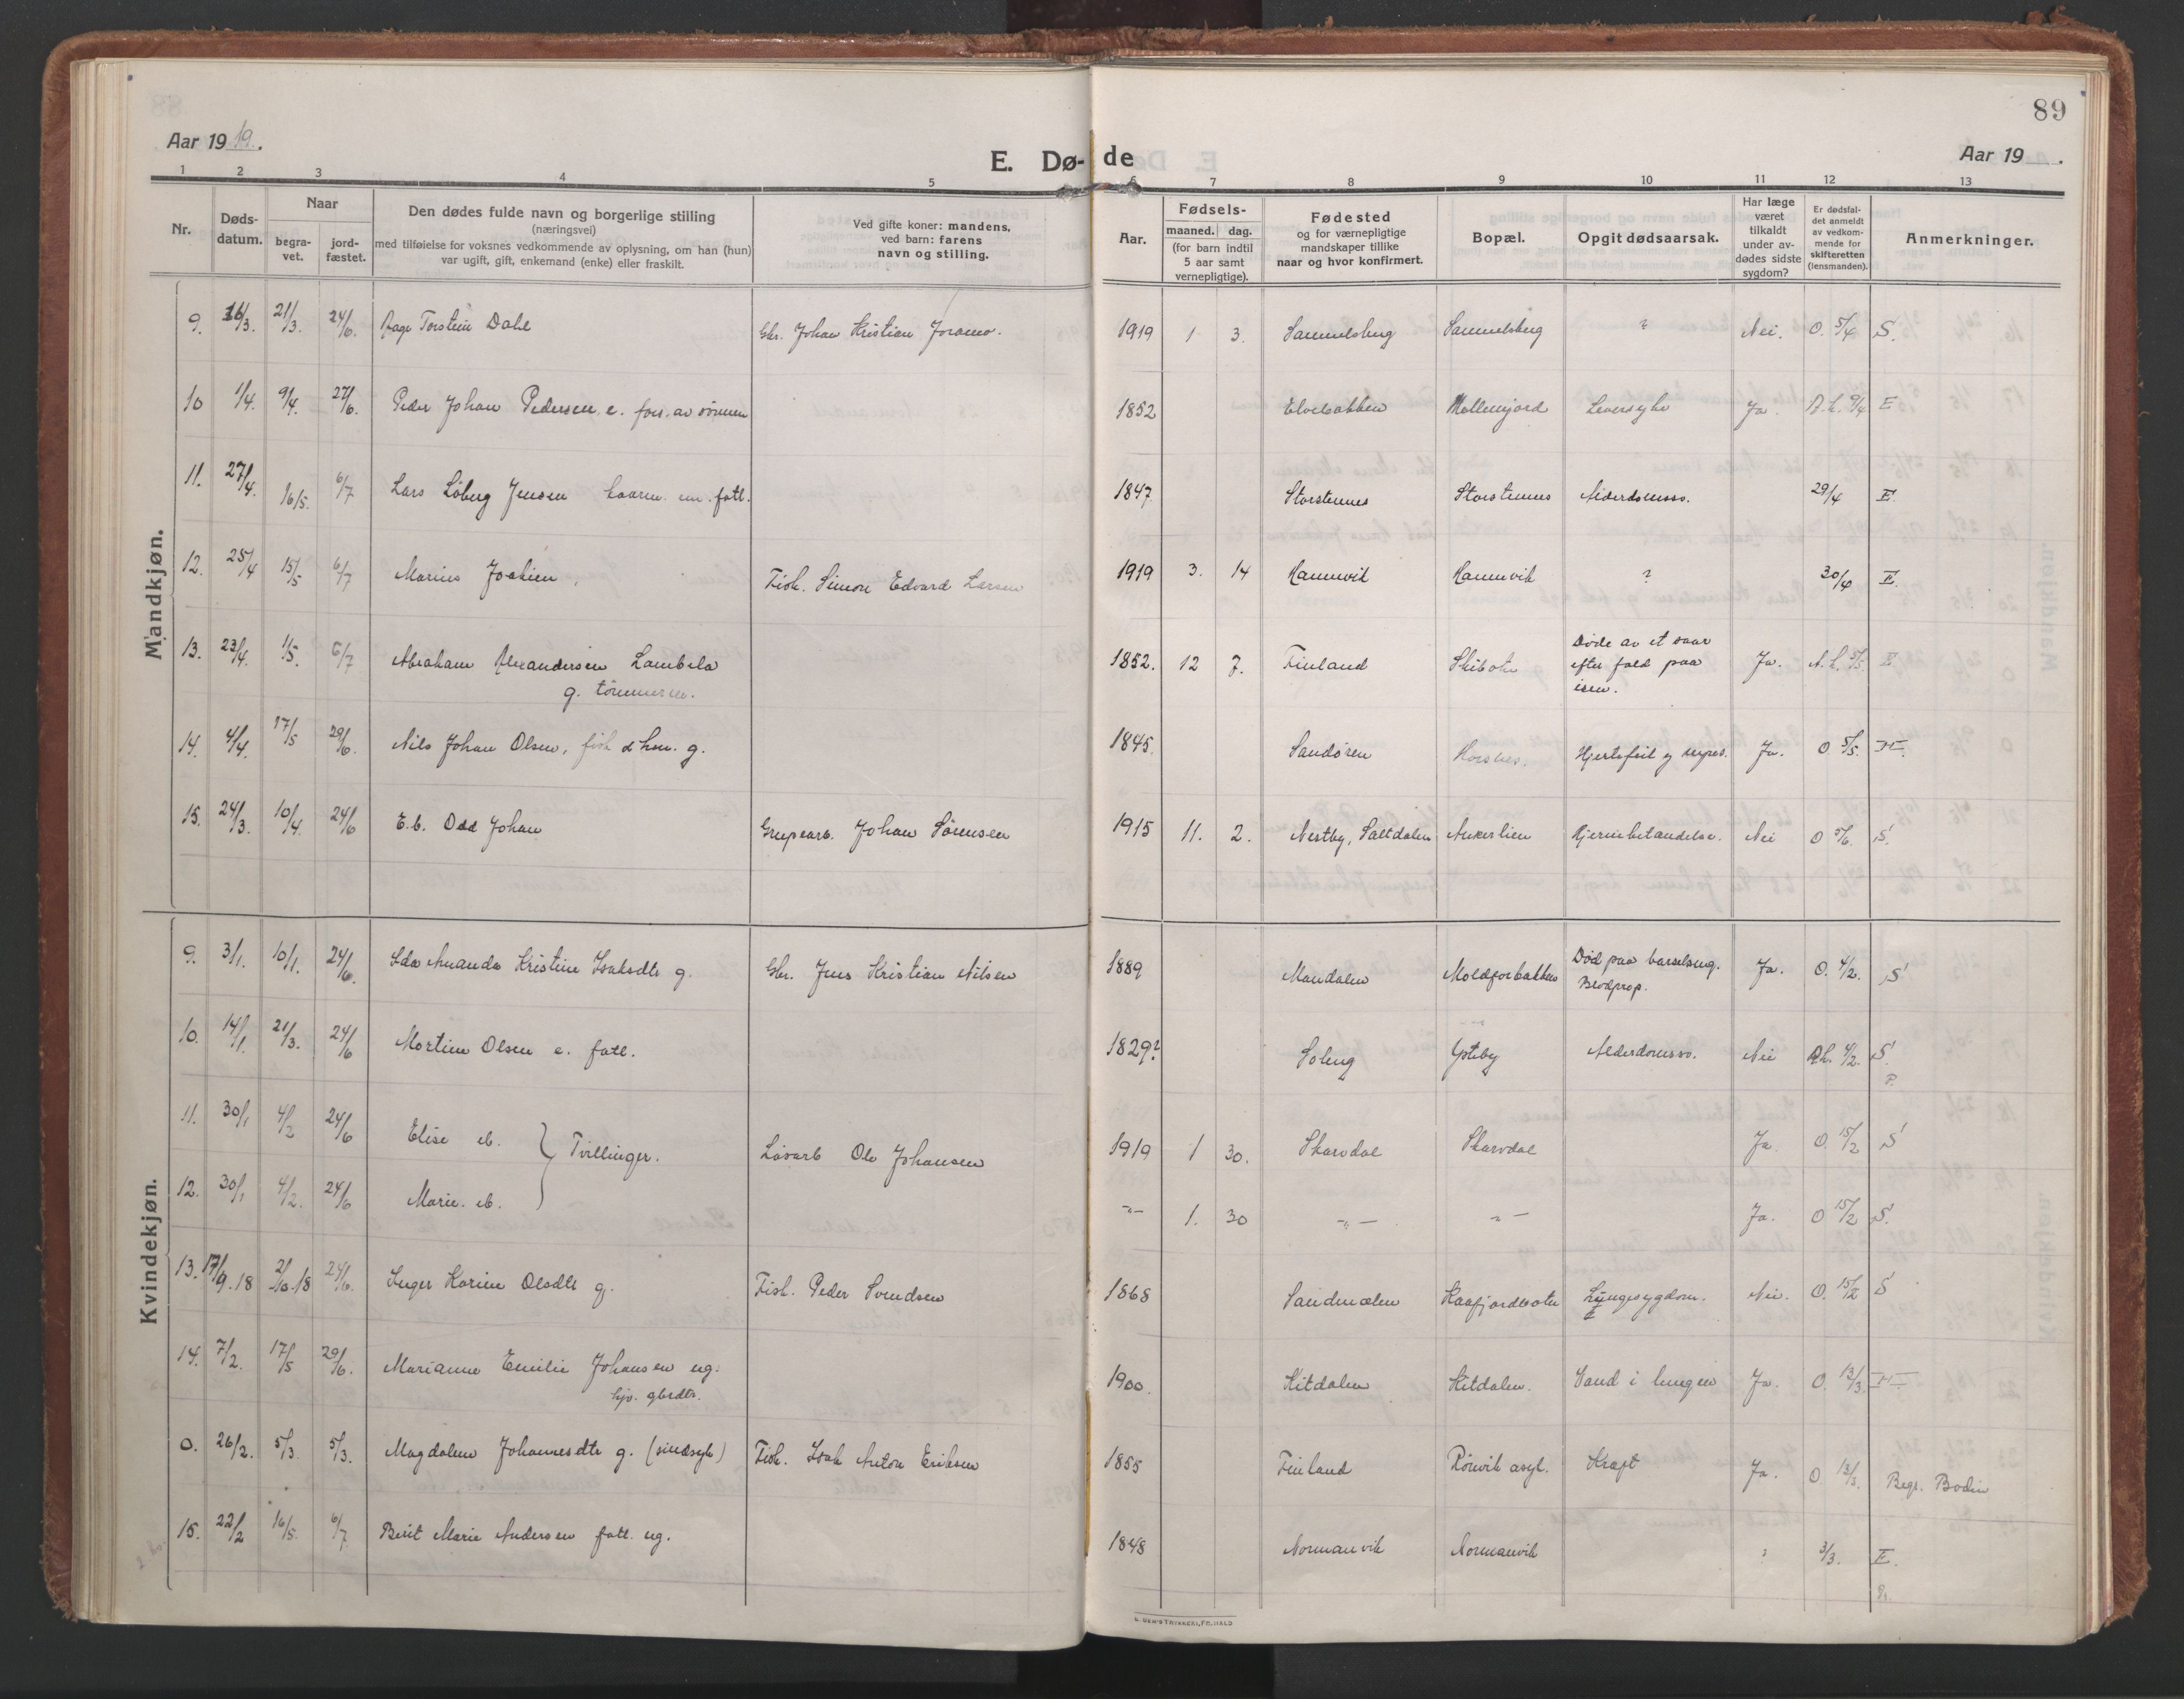 89
Aar 1919.
E. Dø- de
Aar 19 .
1 2 3 4 5 6 7 8 9 10 11 12 13
Nr.
Døds-
datum.
Naar
begra-
vet.
jord-
fæstet.
Den dødes fulde navn og borgerlige stilling
(næringsvei)
med tilføielse for voksnes vedkommende av oplysning, om han (hun)
var ugift, gift, enkemand (enke) eller fraskilt.
Ved gifte koner: mandens,
ved barn: farens
navn og stilling.
Aar.
Fødsels-
maaned. dag.
(for barn indtil
5 aar samt
vernepligtige).
Fødested
og for værnepligtige
mandskaper tillike
naar og hvor konfirmert.
Bopæl.
Opgit dødsaarsak.
Har læge
været
tilkaldt
under av-
dødes sidste
sygdom?
Er dødsfal-
det anmeldt
av vedkom-
mende for
skifteretten
(lensmanden).
Anmerkninger.
Mandkjøn.
9. 16/3. 21/3. 24/6. Aage Torstein Dahl Gbr. Johan Kristian Joramo. 1919 1 3. Samuelsberg Samuelsberg ? Nei. O. 5/4 S.
10 1/4. 9/4. 27/6. Peder Johan Pedersen. e. fors. av sönnen 1852 Elvebakken Mollenjord Leversyke Ja. 9/4 E
11. 27/4. 16/5. 6/7 Lars Löberg Jensen fatt. 1847. Storstennes Storstennes Alderdomssv. 29/4 E.
12. 25/4 15/5 6/7 Marius Joakim Fisk. Simon Edvard Larsen 1919 3. 14 Hamnvik Hamnvik ? 30/4 E.
13. 23/4. 1/5. 6/7 Abraham Alexandersen Lambela
g. tömmerm. 1852. 12 7. Finland Skibotn Döde av et saar
efter fald paa
isen. Ja. E
14. 4/4. 17/5 29/6. Nils Johan Olsen, fisk & hm. g. 1845. Sandören Horsnes. Hjertefeil Ja. O 5/5. H
15. 24/3. 10/4. 24/6 E.b. Odd Johan Grupearb. Johan Sörensen 1915 11. 2. Nestby, Saltdalen Ankerlien Hjernebetændelse. Nei O S.
Kvindekjøn.
9. 3/1. 10/1. 24/6. Ida Amanda Kristine Isaksdtr g. Gbr. Jens Kristian Nilsen 1889 Mandalen Moldforbakken Död paa barselseng.
Blodprop. Ja. O. 4/2. S
10. 14/1. 21/3. 24/6 Mortine Olsen e. fatt. 1829? Soleng Ysteby Alderdomssv. Nei 4/2. S
P.
11. 30/1 4/2 24/6 Elise eb. } Tvillinger. Lösarb Ole Johansen 1919 1 30. Skardal Skardal Ja. O. 15/2 S
12. 30/1 4/2. 24/6 Marie. eb. -"- 1. 30 -"- -"- Ja. O 15/2 S.
13. 17/9.18 2/10.18 24/6. Inger Karine Olsdtr g. Fisk. Peder Svendsen 1868 Sandmælen Kaafjordbotn Lungesygdom. Nei. O. 15/2 S
14. 7/2. 17/5 29/6. Marianne Emilie Johansen ug.
hjv. gbrdtr. 1900. Kitdalen Kitdalen. Vand i lungen Ja. O. 13/3. H
0. 26/2. 5/3. 5/3. Magdalene Johannesdtr g. (sindsyk) Fisk. Isak Anton Eriksen 1855 Finland Rönvik asyl. Kræft Ja. O 13/3. Begr. Bodin
15. 22/2 16/5. 6/7. Berit Marie Andersen fatt. ug. 1848 Normanvik Normanvik ? 3/3. E.